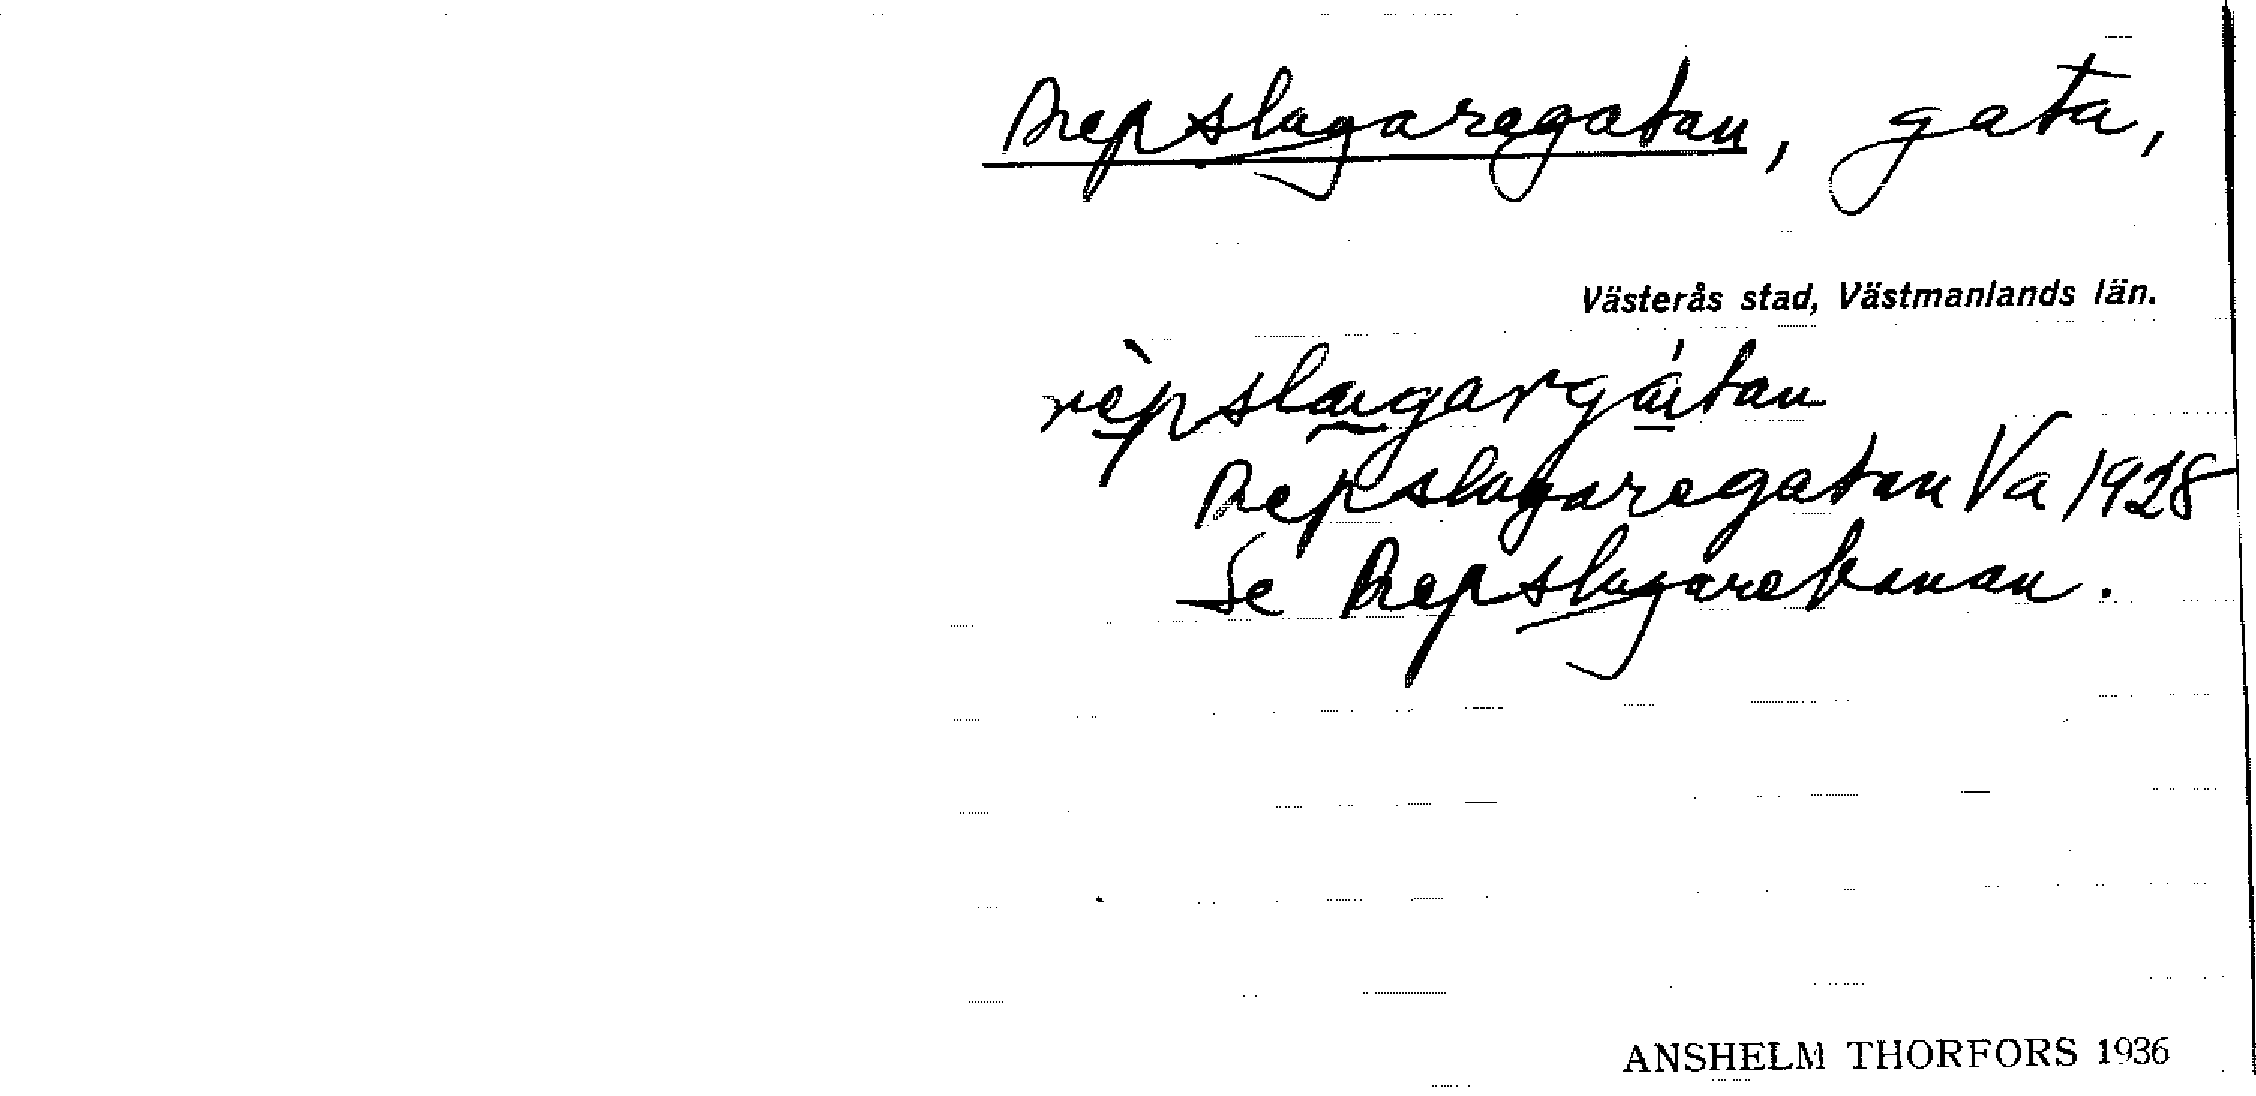 Repslagaregatan, gata,
Västerås stad, Västmanlands län.
rèpslagargátan
Repslagaregatan Va 1928
Se Repslagarebanan.
ANSHELM THORFORS 1936